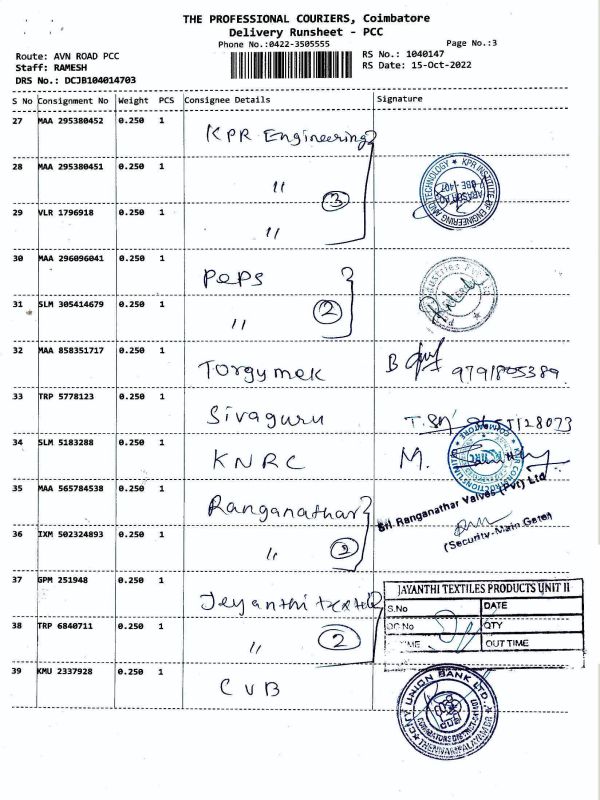 THE PROFESSIONAL COURIERS, Coimbatore
Delivery Runsheet - PCC
Phone No.:0422-3505555
Page No.:3
Route: AVN ROAD PCC
RS No.: 1040147
Staff: RAMESH
RS Date: 15-Oct-2022
DRS No.: DCJB104014703
S No Consignment No Weight PCS Consignee Details Signature
27 MAA 295380452 0.250 1 KPR Engineering
28 MAA 295380451 0.250 1 〃 3
KPR INSTITUTE OF ENGINEERING AND TECHNOLOGY
29 VLR 1796918 0.250 1 〃
30 MAA 296096041 0.250 1 Peps
31 SLM 305414679 0.250 1 〃 2
32 MAA 858351717 0.250 1 Torgymek B 9791805389
33 TRP 5778123 0.250 1 Sivaguru
34 SLM 5183288 0.250 1 KNRC M.
35 MAA 565784538 0.250 1 Ranganathar
Sri Ranganathar Valves (Pvt) Ltd
36 IXM 502324893 0.250 1 〃 2
(Security-Main Gate)
37 GPM 251948 0.250 1 Jeyanthi textile
JAYANTHI TEXTILES PRODUCTS UNIT II
S.No DATE
DC No QTY
TIME OUT TIME
38 TRP 6840711 0.250 1 〃 2
39 KMU 2337928 0.250 1 CUB
CITY UNION BANK LTD.